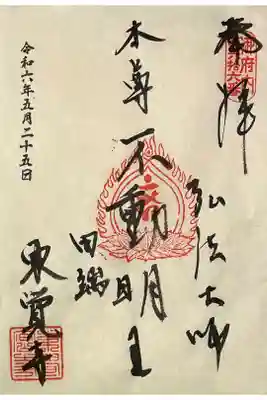 奉拝
弘法大師
本尊 不動明王
田端
東覚寺
令和六年五月二十五日